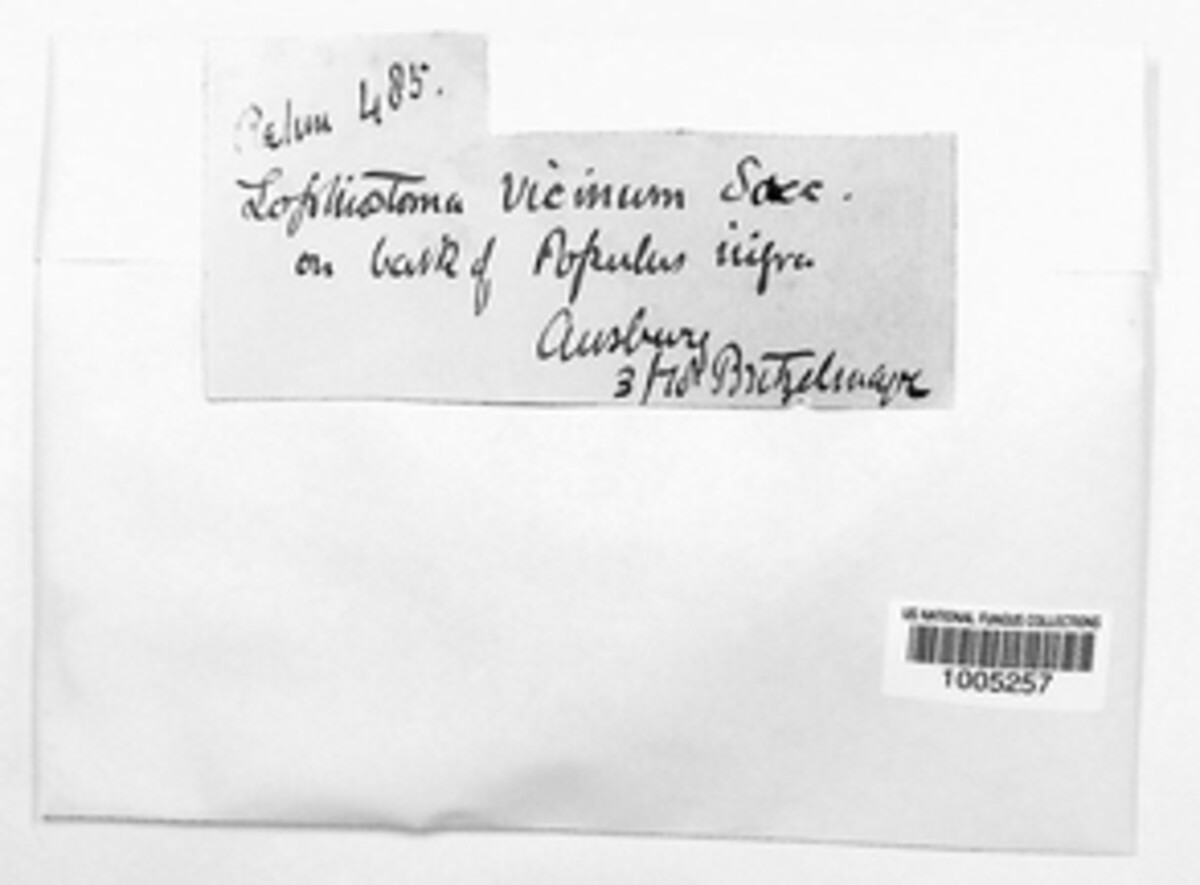 Rehm 485.
Lophiostoma vicinum Sacc.
on bark of Populus nigra
Ausburg
3/78 Britzelmayr
US NATIONAL FUNGUS COLLECTIONS
1005257